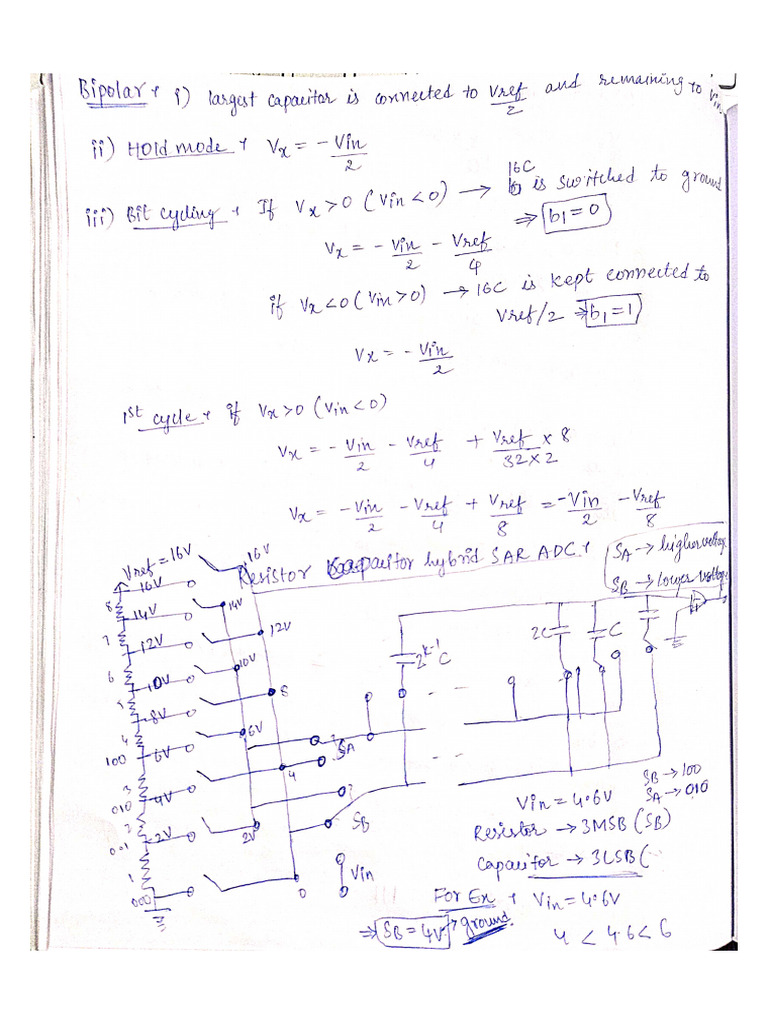 Bipolar → i) largest capacitor is connected to Vref/2 and remaining to Vin
ii) Hold mode → Vx = -Vin/2
iii) Bit cycling → If Vx > 0 (Vin < 0) → 16C is switched to ground
⇒ b1 = 0
Vx = -Vin/2 - Vref/4
if Vx < 0 (Vin > 0) → 16C is kept connected to
Vref/2 ⇒ b1 = 1
Vx = -Vin/2
1st cycle → if Vx > 0 (Vin < 0)
Vx = -Vin/2 - Vref/4 + Vref/32×2 × 8
Vx = -Vin/2 - Vref/4 + Vref/8 = -Vin/2 - Vref/8
Resistor Capacitor hybrid SAR ADC →
SA → higher voltage
SB → lower voltage
Vref = 16V
16V
16V
8
14V
14V
7
12V
12V
6
10V
10V
5
8V
8
4
100
6V
6V
3
010
4V
4
2
001
2V
2V
1
000
0
SA
SB
Vin
2^k-1 C
2C
C
SB → 100
SA → 010
Vin = 4.6V
Resistor → 3MSB (SB)
Capacitor → 3LSB (
For Ex → Vin = 4.6V
⇒ SB = 4V → ground
4 < 4.6 < 6